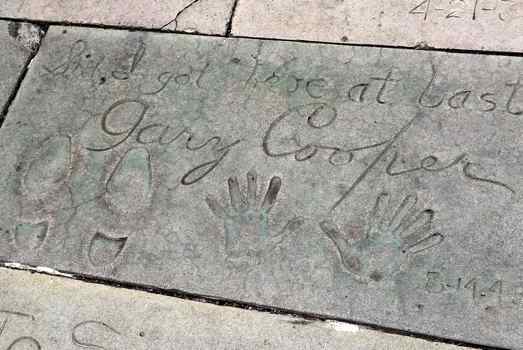 4-21-3
Sid, I got here at last
Gary Cooper
8-14-4
To S